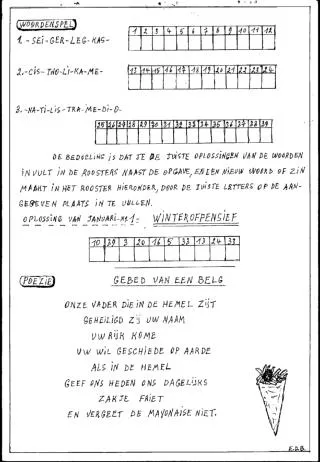 WOORDENSPEL
1 2 3 4 5 6 7 8 9 10 11 12
1.-SEI-GER-LEG-KAS-
13 14 15 16 17 18 19 20 21 22 23 24
2.-CIS-THO-LI-KA-ME-
3.-NA-TI-LIS-TRA-ME-DI-O-
25 26 27 28 29 30 31 32 33 34 35 36 37 38 39
DE BEDOELING IS DAT JE DE JUISTE OPLOSSINGEN VAN DE WOORDEN
INVULT IN DE ROOSTERS NAAST DE OPGAVE, EN EEN NIEUW WOORD OF ZIN
MAAKT IN HET ROOSTER HIERONDER, DOOR DE JUISTE LETTERS OP DE AAN-
GEGEVEN PLAATS IN TE VULLEN.
OPLOSSING VAN JANUARI-NR1- WINTEROFFENSIEF
10 39 3 20 16 5 33 13 24 31
POEZIE
GEBED VAN EEN BELG
ONZE VADER DIE IN DE HEMEL ZIJT
GEHEILIGD ZIJ UW NAAM
UW RIJK KOME
UW WIL GESCHIEDE OP AARDE
ALS IN DE HEMEL
GEEF ONS HEDEN ONS DAGELIJKS
ZAKJE FRIET
EN VERGEET DE MAYONAISE NIET.